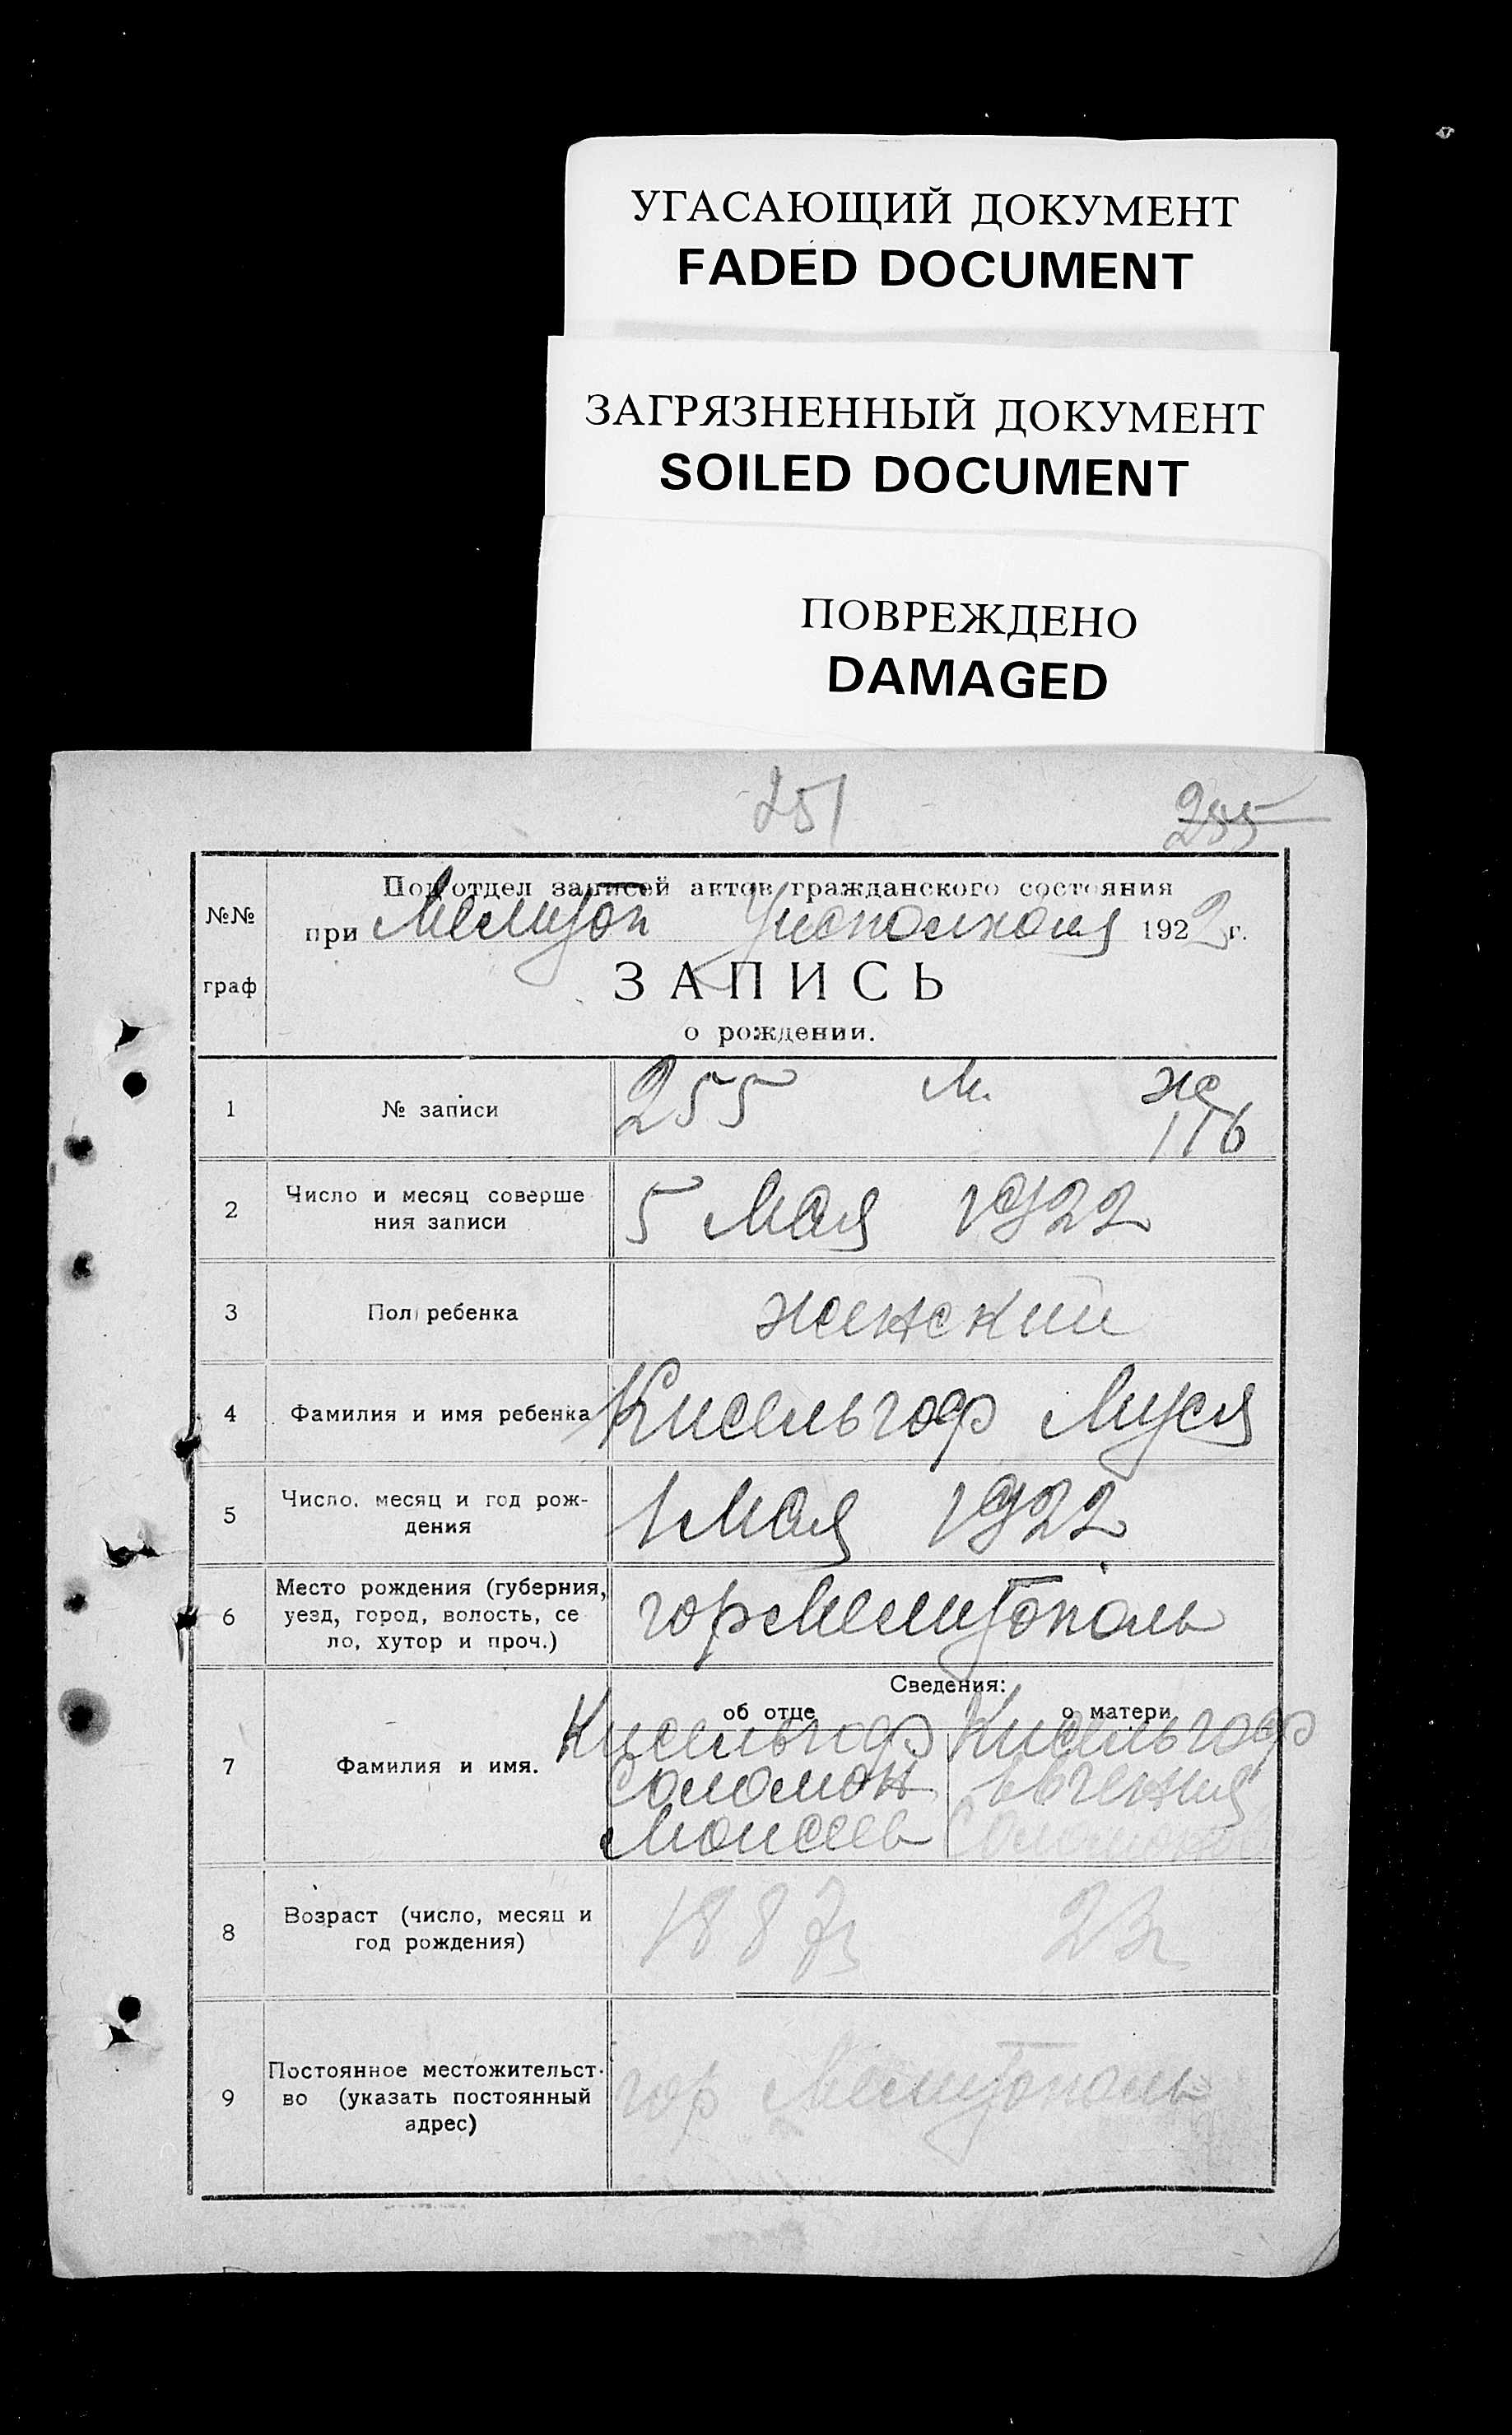 УГАСАЮЩИЙ ДОКУМЕНТ
FADED DOCUMENT
ЗАГРЯЗНЕННЫЙ ДОКУМЕНТ
SOILED DOCUMENT
ПОВРЕЖДЕНО
DAMAGED
251
255
№№ граф
Подотдел записей актов гражданского состояния
при Мелитоп Уисполкома 1922 г.
ЗАПИСЬ
о рождении.
1 № записи 255 м. ж
116
2 Число и месяц соверше
ния записи
5 Мая 1922
3 Пол ребенка женский
4 Фамилия и имя ребенка Кисельгоф Муся
5 Число, месяц и год рож-
дения
1 Мая 1922
6 Место рождения (губерния,
уезд, город, волость, се
ло, хутор и проч.)
гор Мелитополь
Сведения:
об отце о матери
7 Фамилия и имя.
Кисельгоф Кисельгоф
Соломон Евгения
Моисеев Соломонов
8 Возраст (число, месяц и
год рождения)
1887г 23г
9 Постоянное местожительст-
во (указать постоянный
адрес)
гор Мелитополь